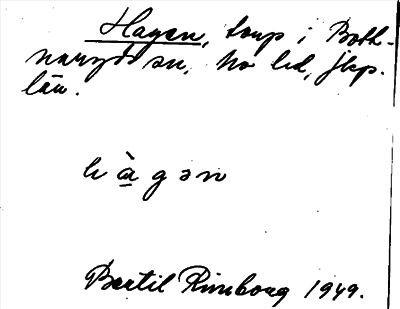 Hagen, torp i Both-
naryds sn, Mo hd, Jkp.
län.
hàgən
Bertil Rimborg 1949.